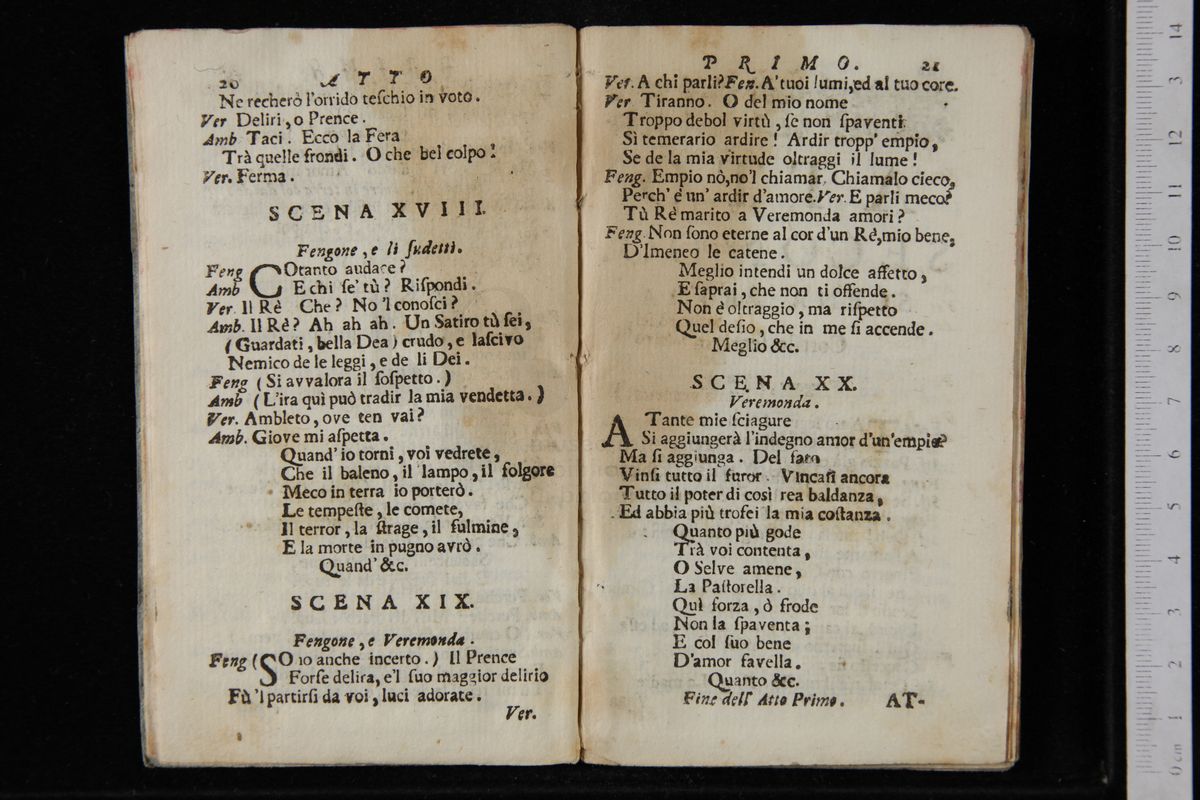 20 ATTO
Ne recherò l'orrido teſchio in voto.
Ver Deliri, o Prence.
Amb Taci. Ecco la Fera
Trà quelle frondi. O che bel colpo!
Ver. Ferma.
SCENA XVIII.
Fengone, e li ſudetti.
Feng COtanto audace?
Amb E chi ſe' tù? Riſpondi.
Ver Il Rè Che? No 'l conoſci?
Amb. Il Rè? Ah ah ah. Un Satiro tù ſei,
(Guardati, bella Dea) crudo, e laſcivo
Nemico de le leggi, e de li Dei.
Feng (Si avvalora il ſoſpetto.)
Amb (L'ira quì può tradir la mia vendetta.)
Ver. Ambleto, ove ten vai?
Amb. Giove mi aſpetta.
Quand' io torni, voi vedrete,
Che il baleno, il lampo, il folgore
Meco in terra io porterò.
Le tempeſte, le comete,
Il terror, la ſtrage, il fulmine,
E la morte in pugno avrò.
Quand' &c.
SCENA XIX.
Fengone, e Veremonda.
Feng (SO io anche incerto.) Il Prence
Forſe delira, e'l ſuo maggior delirio
Fù 'l partirſi da voi, luci adorate.
Ver.
PRIMO. 21
Ver. A chi parli? Fen. A' tuoi lumi, ed al tuo core.
Ver Tiranno. O del mio nome
Troppo debol virtù, ſe non ſpaventi
Sì temerario ardire! Ardir tropp' empio,
Se de la mia virtude oltraggi il lume!
Feng. Empio nò, no'l chiamar. Chiamalo cieco,
Perch' è un' ardir d'amore. Ver. E parli meco?
Tù Rè marito a Veremonda amori?
Feng. Non ſono eterne al cor d'un Rè, mio bene,
D'Imeneo le catene.
Meglio intendi un dolce affetto,
E ſaprai, che non ti offende.
Non è oltraggio, ma riſpetto
Quel deſio, che in me ſi accende.
Meglio &c.
SCENA XX.
Veremonda.
A Tante mie ſciagure
Si aggiungerà l'indegno amor d'un'empio?
Ma ſi aggiunga. Del fato
Vinſi tutto il furor. Vincaſi ancora
Tutto il poter di così rea baldanza,
Ed abbia più trofei la mia coſtanza.
Quanto più gode
Trà voi contenta,
O Selve amene,
La Paſtorella.
Quì forza, ò frode
Non la ſpaventa;
E col ſuo bene
D'amor favella.
Quanto &c.
Fine dell' Atto Primo. AT-
0 cm 1 2 3 4 5 6 7 8 9 10 11 12 13 14